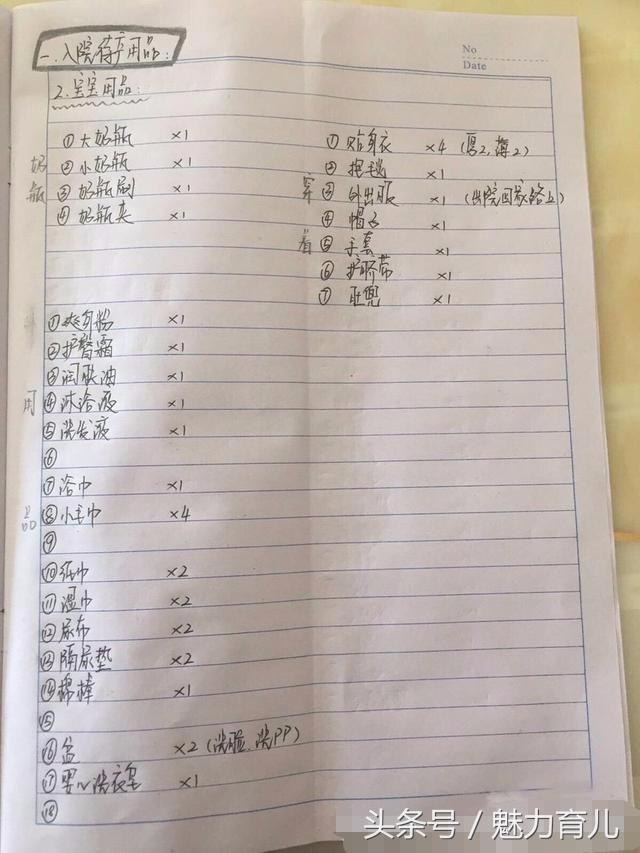 一.入院待产用品:
No
Date
2.宝宝用品:
奶瓶
①大奶瓶 ×1
②小奶瓶 ×1
③奶瓶刷 ×1
④奶瓶夹 ×1
穿着
①贴身衣 ×4 (厚2,薄2)
②抱毯 ×1
③外出服 ×1 (出院回家路上)
④帽子 ×1
⑤手套 ×1
⑥护脐带 ×1
⑦肚兜 ×1
用品
①爽身粉 ×1
②护臀霜 ×1
③润肤油 ×1
④沐浴液 ×1
⑤洗发液 ×1
⑥
⑦浴巾 ×1
⑧小毛巾 ×4
⑨
⑩纸巾 ×2
⑪湿巾 ×2
⑫尿布 ×2
⑬隔尿垫 ×2
⑭棉棒 ×1
⑮
⑯盆 ×2 (洗脸,洗PP)
⑰婴儿洗衣皂 ×1
⑱
头条号 / 魅力育儿